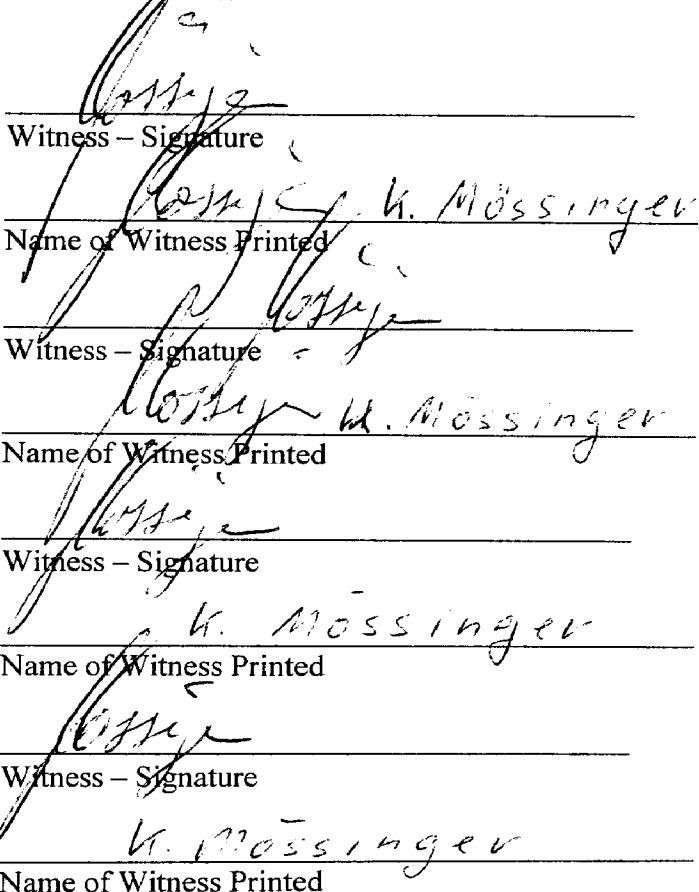 Witness – Signature
K. Mössinger
Name of Witness Printed
Witness – Signature
K. Mössinger
Name of Witness Printed
Witness – Signature
K. Mössinger
Name of Witness Printed
Witness – Signature
K. Mössinger
Name of Witness Printed